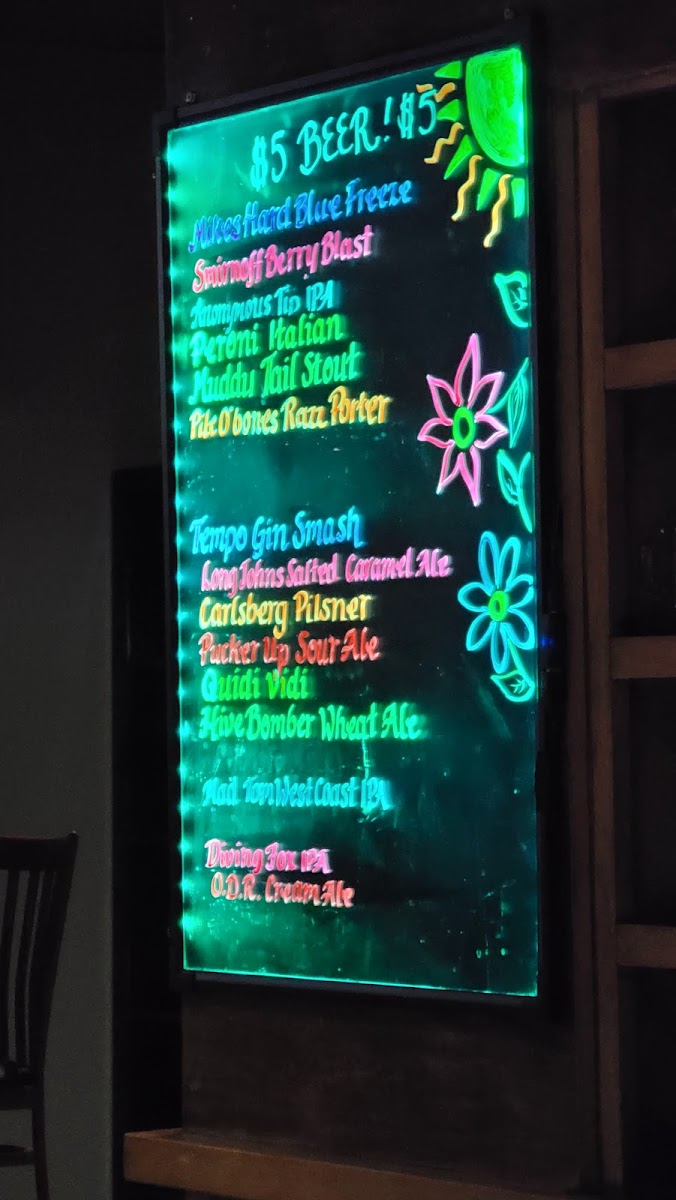 $5 BEER! $5
Mikes Hard Blue Freeze
Smirnoff Berry Blast
Anonymous Tip IPA
Peroni Italian
Muddy Tail Stout
Pile O'bones Razz Porter
Tempo Gin Smash
Long Johns Salted Caramel Ale
Carlsberg Pilsner
Pucker Up Sour Ale
Quidi Vidi
Hive Bomber Wheat Ale
Mad Tom West Coast IPA
Diving Fox IPA
O.D.R. Cream Ale